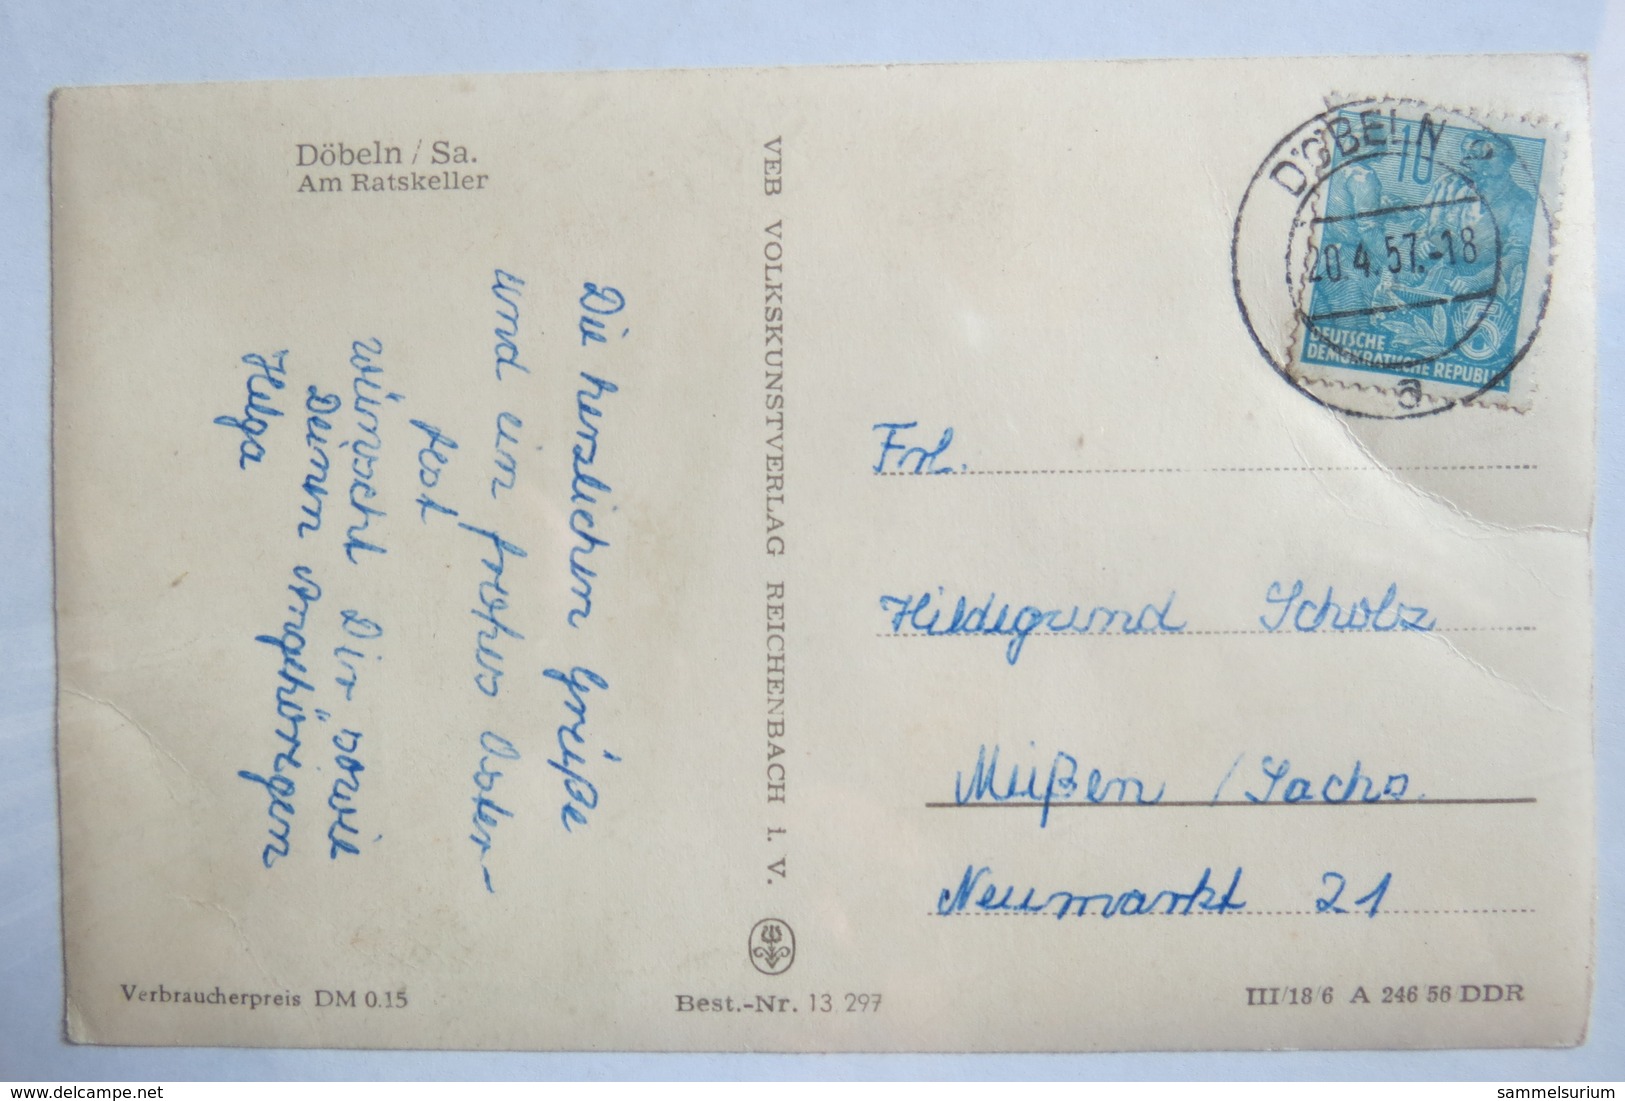 Döbeln / Sa.
Am Ratskeller
Die herzlichen Grüße
und ein frohes Oster-
fest
wünscht Dir, sowie
Deinen Angehörigen
Helga
VEB VOLKSKUNSTVERLAG REICHENBACH i. V.
DÖBELN 2
20.4.57.-18
a
10
5
DEUTSCHE
DEMOKRATISCHE REPUBLIK
Frl.
Hildegund Scholz
Meißen / Sachs.
Neumarkt 21
Verbraucherpreis DM 0.15
Best.-Nr. 13 297
III/18/6 A 246 56 DDR
delcampe.net
sammelsurium